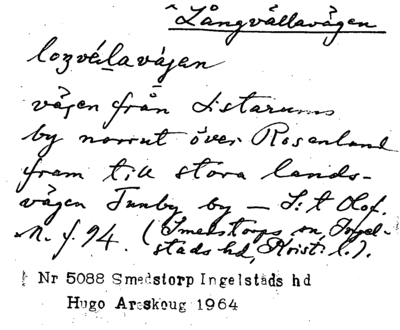 Långvällavägen
lozvélavájen
vägen från Listarums
by norrut över Rosenlund
fram till stora lands-
vägen Tunby by — S:t Olof.
M. f. 94. (Smedstorps sn, Ingel-
stads hd, Krist. l.).
Nr 5088 Smedstorp Ingelstads hd
Hugo Areskoug 1964